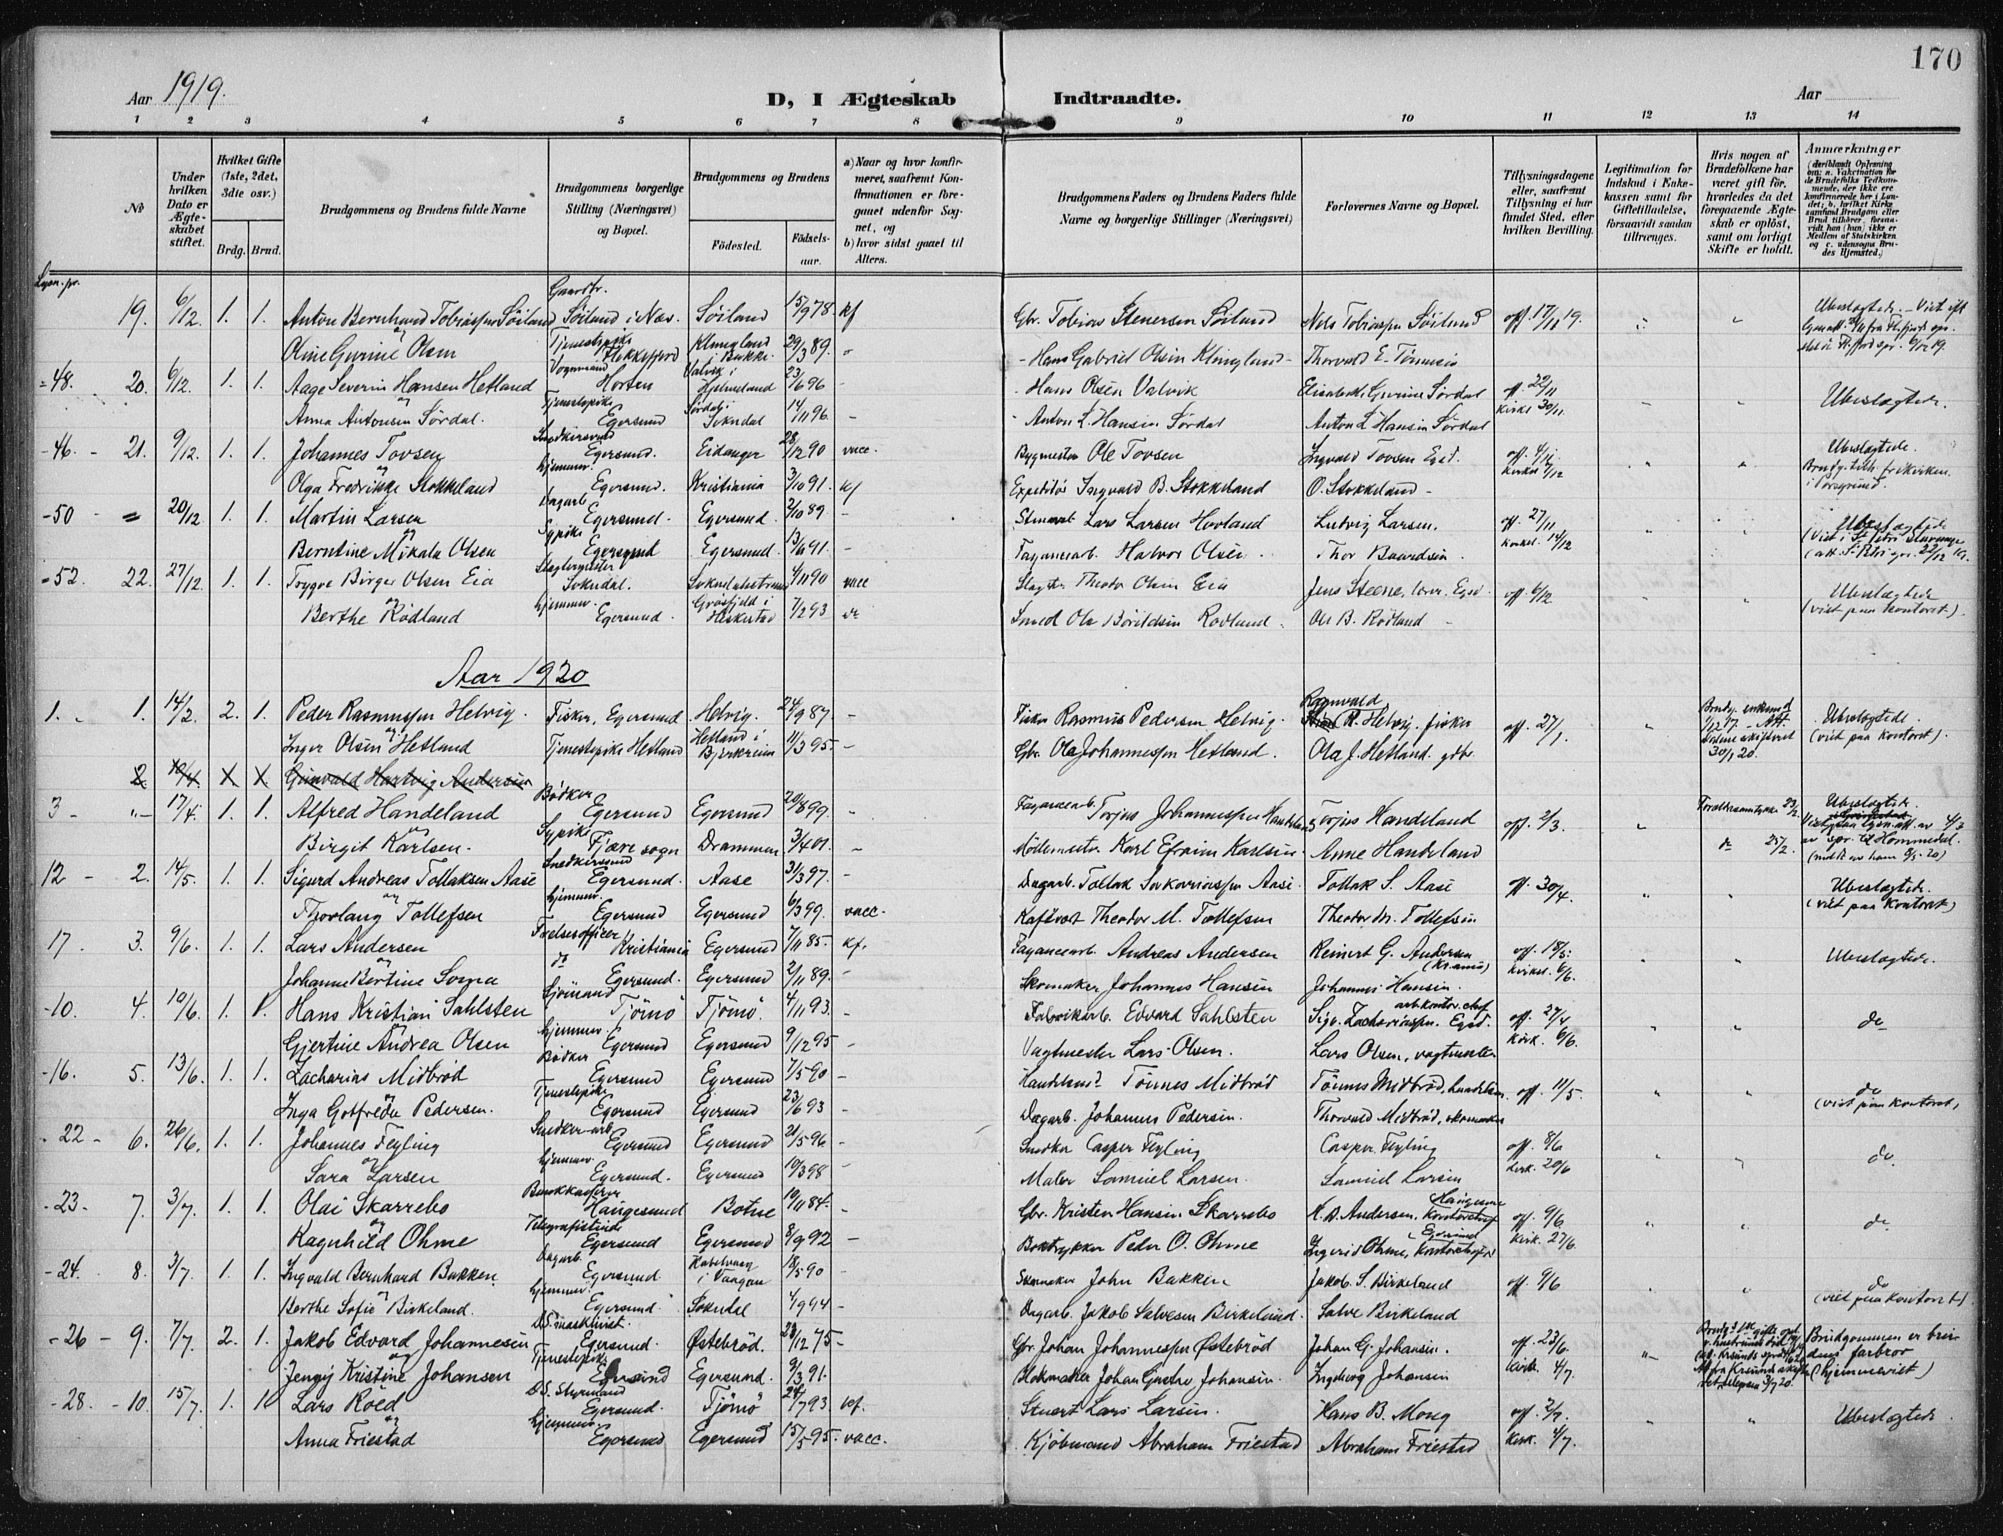 170
Aar 1919.
D, I Ægteskab Indtraadte.
Aar
1 2 3 4 5 6 7 8 9 10 11 12 13 14
No
Under hvilken Dato er Ægteskabet stiftet.
Hvilket Gifte (1ste, 2det, 3die osv.)
Brdg. Brud.
Brudgommens og Brudens fulde Navne
Brudgommens borgerlige Stilling (Næringsvei) og Bopæl.
Brudgommens og Brudens
Fødested. Fødselsaar.
a) Naar og hvor konfirmeret, saafremt Konfirmationen er foregaaet udenfor Sognet, og
b) hvor sidst gaaet til Alters.
Brudgommens Faders og Brudens Faders fulde Navne og borgerlige Stillinger (Næringsvei)
Forlovernes Navne og Bopæl.
Tillysningsdagene eller, saafremt Tillysning ei har fundet Sted, efter hvilken Bevilling.
Legitimation for Indskud i Enkekassen samt for Giftetilladelse, forsaavidt saadan tiltrænges.
Hvis nogen af Brudefolkene har været gift før, hvorledes da det foregaaende Ægteskab er opløst, samt om lovligt Skifte er holdt.
Anmærkninger
19. 6/12. 1. 1. Anton Bernhard Tobiassen Søiland Gaardbr. Søiland i Næs. Søiland 15/9 78. kf Gbr. Tobias Stenersen Søiland Nils Tobiassen Søiland off. 17/11 19.
og
Oline Gurine Olsen Tjenestepike Flekkefjord Klungland i Bakke 29/3 89. Hans Gabriel Olsen Klungland Thorvald E. Tønnesen
-48. 20. 6/12. 1. 1. Aage Severin Hansen Hetland Vognmand Horten Valvik i Hetland 23/6 96 - Hans Olsen Valvik Elisabeth Gurine Sørdal off. 20/11 Ubeslægtede.
og
Anna Antonsen Sørdal. Tjenestepike Egersund Sørdal i Sokndal 14/11 96. - Anton L. Hansen Sørdal Anton L Hansen Sørdal Kirke 30/11.
-46- 21. 9/12. 1. 1. Johannes Tovsen Snedkersvend Egersund. Eidanger 28/12 90 vacc. Bygmester Ole Tovsen Ingvald Tovsen Egsd. off. 4/12 Ubeslægtede
og
Olga Fredrikke Stokkeland Hjemmev. Egersund. Kristiania 3/10 91. kf Expeditør Ingvald B. Stokkeland O. Stokkeland - Brudg. tilh. frikirken i Porsgrund.
-50 - = 20/12 1. 1. Martin Larsen Dagarb. Egersund. Egersund. 2/10 89. - Lars Larsen Hovland Ludvig Larsen. off. 27/11 Ubeslægtede
og
Berntine Mikala Olsen Sypike Egersund Egersund. 13/6 91. - Fayancearb. Halvor Olsen. Thor Baardsen Kirkel. 14/12 (att. St. Petri spr. 22/12 19.
-52. 22. 27/12. 1. 1. Trygve Birger Olsen Eia Slagtermester Sokndal. Sokndalsstrand 4/11 90 vacc Slagter Theodor Olsen Eia Jens Steene, Egsd. off. 6/12 Ubeslægtede
og
Berthe Rødland Hjemmev. Egersund. Grøsfjeld i Heskestad 7/2 93 do Smed Ole Rødland. Ole B. Rødland - (viet paa kontoret).
Aar 1920
1. 1. 14/2. 2. 1. Peder Rasmussen Helvig. Fisker, Egersund. Helvig. 24/9 87. - Fisker Rasmus Pedersen Helvig. Ragnvald R. Helvig. fisker off. 27/1. Ubeslægtede.
og
Inger Olsen Hetland Tjenestepike Hetland Hetland i Bjerkreim 11/3 95. - Gbr. Ola Johannessen Hetland. Ola J. Hetland gbr. 30/1 20. (viet paa kontoret).
2 10/4. X X. Gunvald Hartvig Andersen
3 - 17/4. 1. 1. Alfred Handeland Bødker Egersund Egersund 20/8 99. - Fayancearb. Torjus Johannessen Handeland Torjus Handeland off. 2/3. Ubeslægtede.
og
Birgit Karlsen. Sypike Fjære sogn Drammen 3/4 01. - Møllemester Karl Efraim Karlsen Anne Handeland do 25/2. spr. til Hommedal.
12 - 2. 14/5. 1. 1. Sigurd Andreas Tollaksen Aase Snedkersvend Egersund. Aase 31/3 97. - Dagarb. Tollak Sakariassen Aase. Tollak S. Aase off. 30/4. Ubeslægtede.
og
Thorlaug Tollefsen Hjemmev. Egersund Egersund 6/3 99. vacc. Kafévært Theodor M. Tollefsen Theodor M. Tollefsen (viet paa kontoret)
17 3. 9/6. 1. 1. Lars Andersen Frelsesofficer Kristiania Egersund 7/11 85. kf. Fayancearb. Andreas Andersen Reinert G. Andersen off. 18/5. Ubeslægtede.
og
Johanne Bertine Svma do Egersund. Egersund 2/11 89. - Skomaker Johannes Hansen Johannes Hansen Kirkel. 6/6.
-10. 4. 10/6. 1. 1. Hans Kristian Sahlsten Sjømand Tjømø Tjømø. 4/11 93. - Fabrikarb. Edvard Sahlsten Sigv. Zachariassen. Egsd. off. 27/4 do
og
Gjertine Andrea Olsen Hjemmev. Egersund Egersund 9/12 95- Vagtmester Lars Olsen. Lars Olsen, vagtmester Kirk. 6/6.
-16. 5. 13/6. 1. 1. Zacharias Midbrød Bødker Egersund Egersund 7/5 90 - Handelsm. Tønnes Midbrød Tønnes Midbrød, handelsm. off. 11/5. do
og
Inga Gotfreda Pedersen. Tjenestepike Egersund Egersund 23/6 93 - Dagarb. Johannes Pedersen. Thorvald Midbrød, skomaker (viet paa kontoret)
-22- 6. 26/6. 1. 1. Johannes Feyling Snedkerarb. Egersund Egersund 21/5 96 - Snedker Casper Feyling Casper Feyling off. 8/6 do.
og
Sara Larsen Hjemmev. Egersund. Egersund 10/3 98 - Maler Samuel Larsen. Samuel Larsen kirk. 20/6
-23- 7. 3/7. 1. 1. Olai Skarrebo Bankkasserer Haugesund Botne 10/11 84. - Gbr. Kristen Hansen Skarrebo K. B. Andersen, Haugesund off. 9/6. do
og
Ragnhild Ohme Telegrafistinde Egersund Egersund 8/9 92 - Boktrykker Peder O. Ohme Ingerid Ohme, Egersund Kirk. 27/6.
-24. 8. 3/7. 1. 1. Ingvald Bernhard Bakken Dagarb. Egersund. Kabelvaag i Vaagan 18/5 90 - Skomaker John Bakken Jakob S. Birkeland off. 9/6 do
og
Berthe Sofie Birkeland. Hjemmev. Egersund. Sokndal 4/9 94 - Dagarb. Jakob Salvesen Birkeland. Salve Birkeland (viet paa kontoret)
-26- 9. 7/7. 2. 1. Jakob Edvard Johannesen D.S. maskinist Egersund. Østebrød. 28/12 75- Gbr. Johan Johannessen Østebrød Johan G. Johansen. off. 23/6. Brudgommen er brudens farbror
og
Jenny Kristine Johansen Tjenestepike Egersund Egersund. 9/3 91. Blokmaker Johan Gustav Johansen. Ingeborg Johansen Kirk. 4/7. 3/7 20. (hjemmeviet)
-28. -10. 15/7. 1. 1 Lars Røed D.S. Styrmand Egersund. Tjømø 24/7 93. vcf. Stuert Lars Larsen. Hans B. Mong off. 2/7. Ubeslægtede.
og
Anna Friestad Hjemmev. Egersund Egersund 15/5 95. vacc. Kjøbmand Abraham Friestad Abraham Friestad Kirk. 4/7.